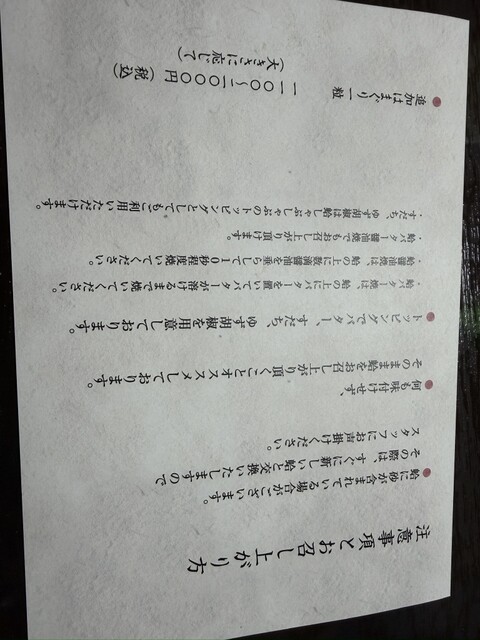 注意事項とお召し上がり方
●蛤に砂が含まれている場合がございます。
その際は、すぐに新しい蛤と交換いたしますので
スタッフにお声掛けください。
●何も味付けせず、
そのまま蛤をお召し上がり頂くことオススメしております。
●トッピングでバター、すだち、ゆず胡椒を用意しております。
・蛤バター焼は、蛤の上にバターを置いてバターが溶けるまで焼いてください。
・蛤醤油焼は、蛤の上に数滴醤油を垂らして10秒程度焼いてください。
・蛤バター醤油焼でもお召し上がり頂けます。
・すだち、ゆず胡椒は蛤しゃぶしゃぶのトッピングとしてもご利用いただけます。
●追加はまぐり一粒
一一〇〇〜二〇〇〇円(税込)
(大きさに応じて)